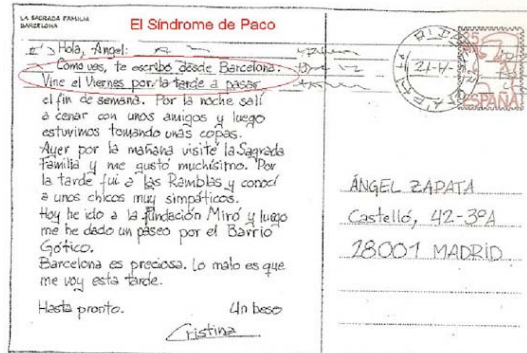 LA SAGRADA FAMILIA
BARCELONA
El Síndrome de Paco
Hola, Ángel:
Como ves, te escribo desde Barcelona.
Vine el Viernes por la tarde a pasar
el fin de semana. Por la noche salí
a cenar con unos amigos y luego
estuvimos tomando unas copas.
Ayer por la mañana visité la Sagrada
Familia y me gustó muchísimo. Por
la tarde fui a las Ramblas y conocí
a unos chicos muy simpáticos.
Hoy he ido a la fundación Miró y luego
me he dado un paseo por el Barrio
Gótico.
Barcelona es preciosa. Lo malo es que
me voy esta tarde.
Hasta pronto. Un beso
Cristina
ESPAÑA
ÁNGEL ZAPATA
Castelló, 42-3ºA
28001 MADRID